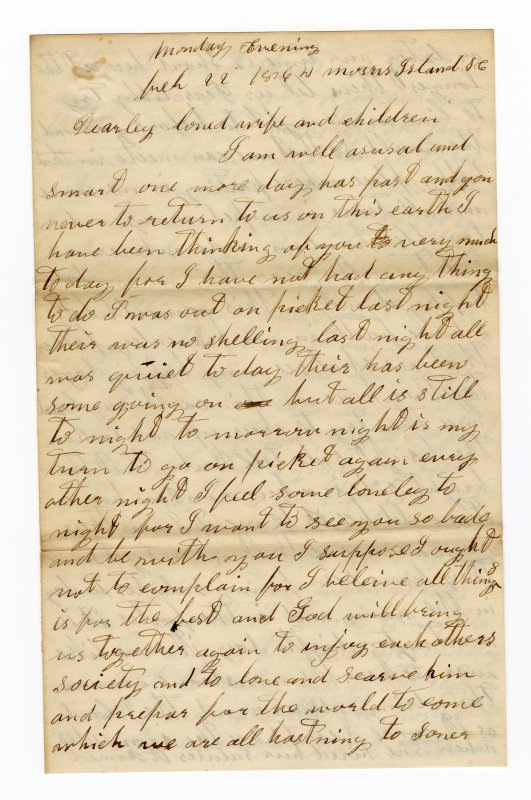 Monday Evening
Feb 22 1864 Morris Island SC
Dearley loved wife and children
I am well as usal and
smart one more day has past and gon
never to return to us on this earth I
have been thinking of you very much
to day for I have not had any thing
to do I was out on picket last night
their was no shelling last night all
was quiet to day their has been
some going on but all is still
to night to morrow night is my
turn to go on picket again every
other night I feel some loneley to
night for I want to see you so bad
and be with you I suppose I ought
not to complain for I beleive all things
is for the best and God will bring
us together again to injoy each others
society and to love and searve him
and prepar for the world to come
which we are all hastning to soner